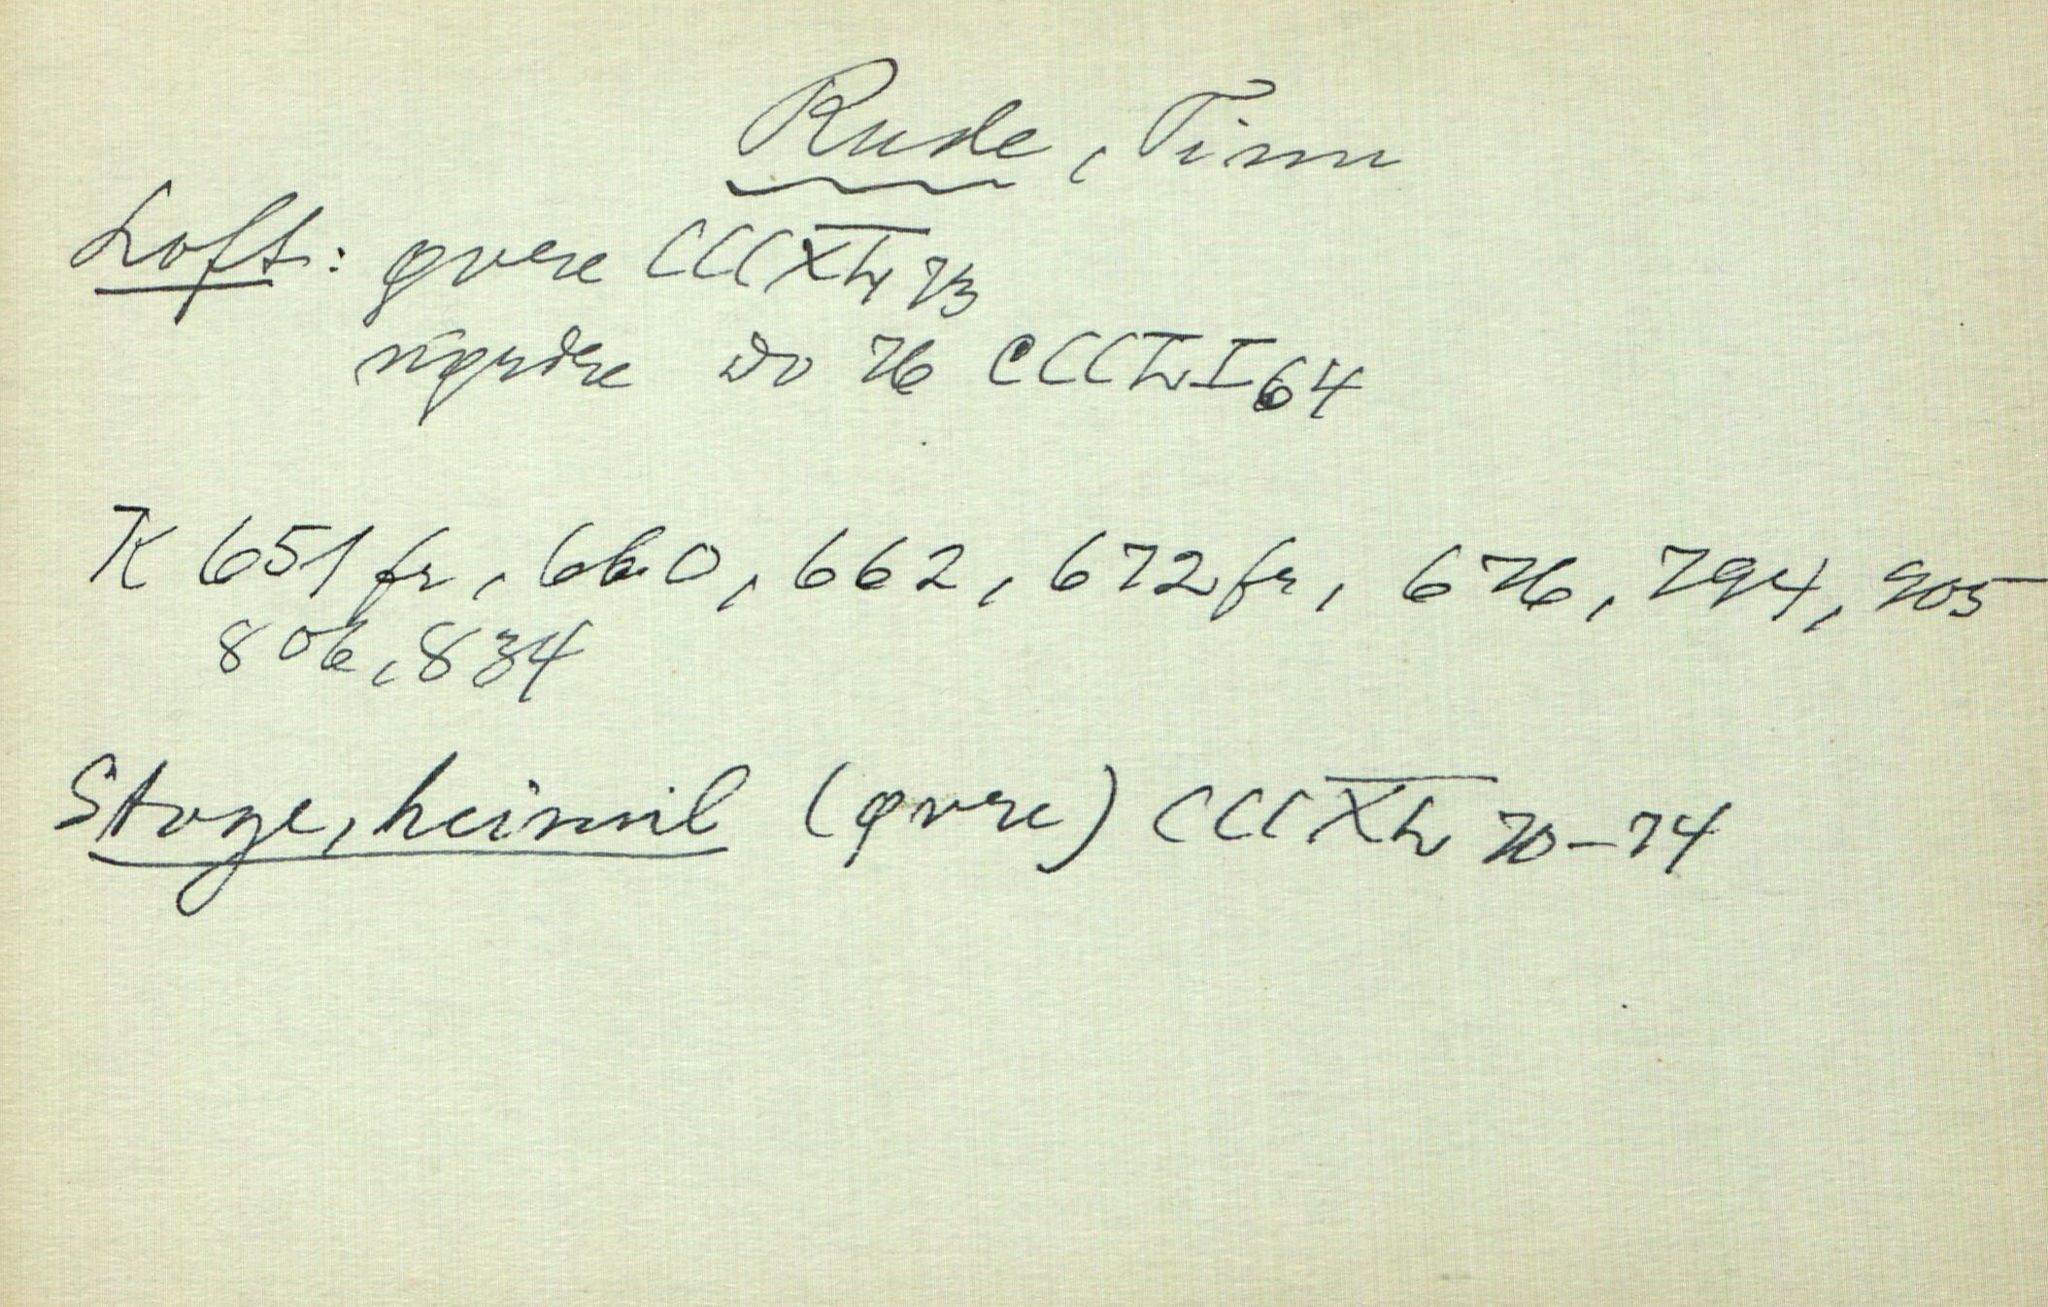 Rude, Tinn
Loft: øvre CCCXLV 73
nordre do 76 CCCLVI 64
K 651 fr, 660, 662, 672 fr, 676, 794, 905
806, 834
Stoge, heimil (øvre) CCCXLV 70-74